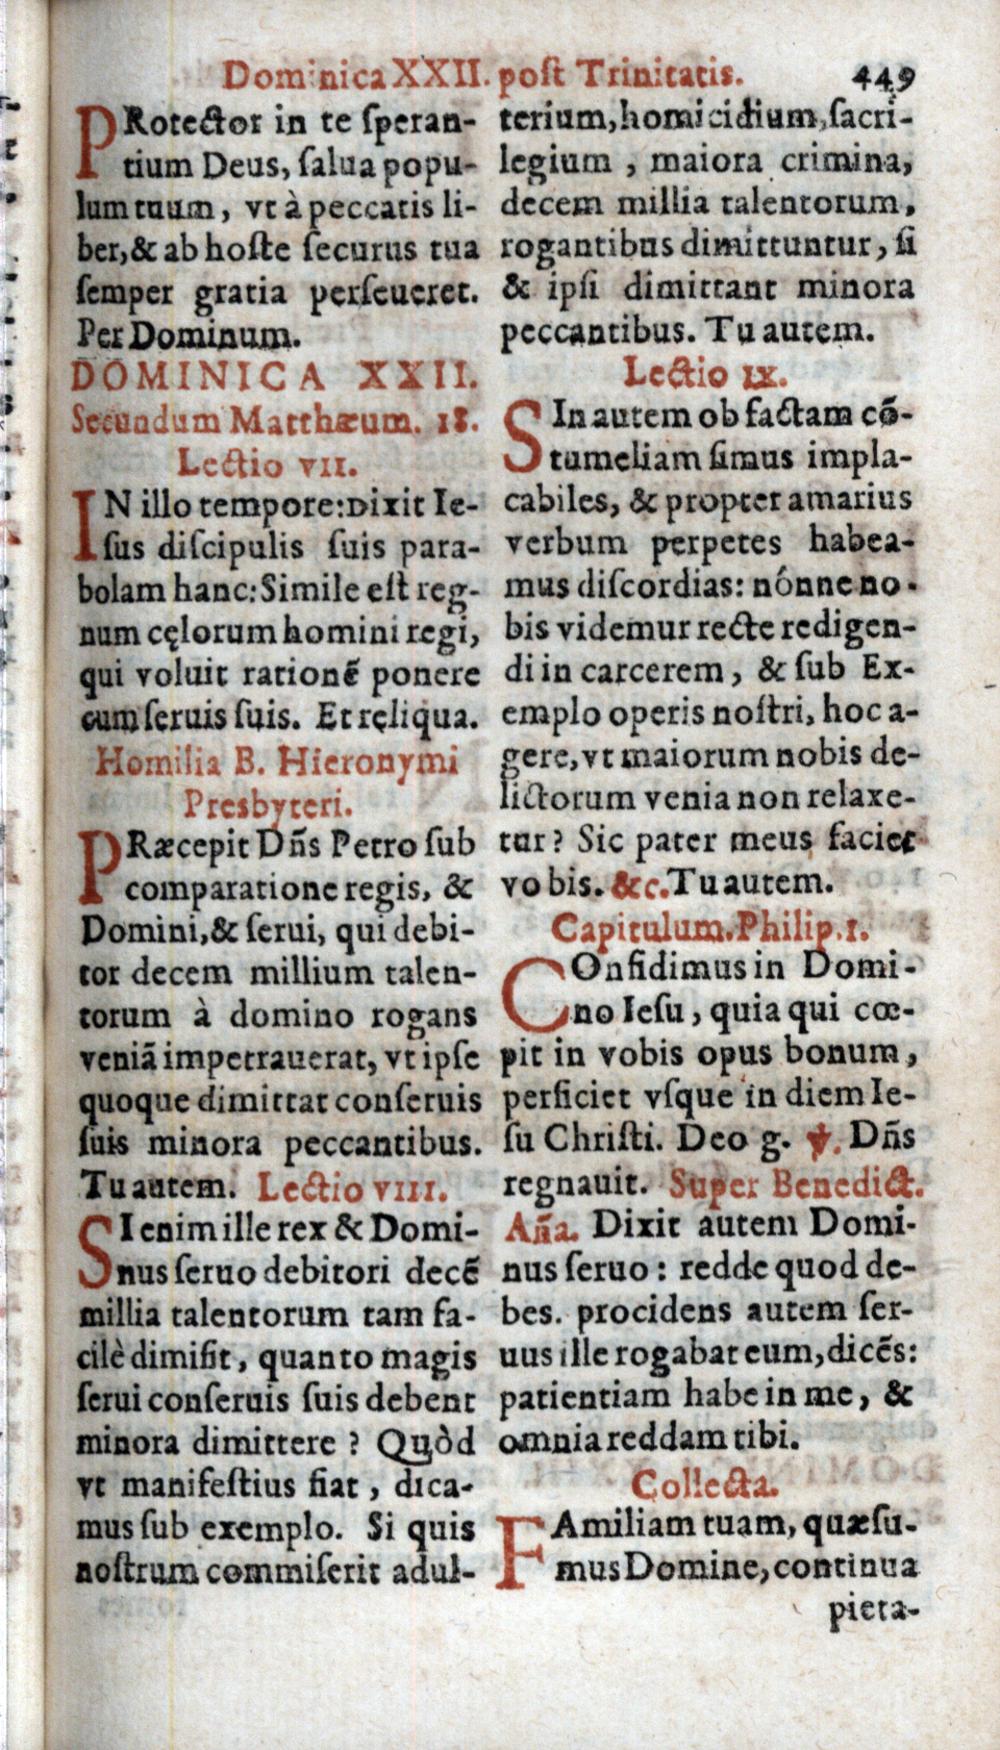 Dominica XXII. poſt Trinitatis. 449
PRotector in te ſperan-
tium Deus, ſalua popu-
lum tuum, vt à peccatis li-
ber, & ab hoſte ſecurus tua
ſemper gratia perſeueret.
Per Dominum.
DOMINICA XXII.
Secundum Matthæum. 18.
Lectio VII.
IN illo tempore: Dixit Ie-
ſus diſcipulis ſuis para-
bolam hanc: Simile eſt reg-
num cęlorum homini regi,
qui voluit rationē ponere
cum ſeruis ſuis. Et ręliqua.
Homilia B. Hieronymi
Presbyteri.
PRæcepit Dñs Petro ſub
comparatione regis, &
Domini, & ſerui, qui debi-
tor decem millium talen-
torum à domino rogans
veniã impetrauerat, vt ipſe
quoque dimittat conſeruis
ſuis minora peccantibus.
Tu autem. Lectio VIII.
SI enim ille rex & Domi-
nus ſeruo debitori decē
millia talentorum tam fa-
cilè dimiſit, quanto magis
ſerui conſeruis ſuis debent
minora dimittere ? Quòd
vt manifeſtius fiat, dica-
mus ſub exemplo. Si quis
noſtrum commiſerit adul-
terium, homicidium, ſacri-
legium , maiora crimina,
decem millia talentorum,
rogantibus dimittuntur, ſi
& ipſi dimittant minora
peccantibus. Tu autem.
Lectio IX.
SIn autem ob factam cõ-
tumeliam ſimus impla-
cabiles, & propter amarius
verbum perpetes habea-
mus diſcordias: nónne no-
bis videmur recte redigen-
di in carcerem, & ſub Ex-
emplo operis noſtri, hoc a-
gere, vt maiorum nobis de-
lictorum venia non relaxe-
tur? Sic pater meus faciet
vobis. &c. Tu autem.
Capitulum. Philip. 1.
COnfidimus in Domi-
no Ieſu, quia qui cœ-
pit in vobis opus bonum,
perficiet vſque in diem Ie-
ſu Chriſti. Deo g. ℣. Dñs
regnauit. Super Benedict.
Aña. Dixit autem Domi-
nus ſeruo : redde quod de-
bes. procidens autem ſer-
uus ille rogabat eum, dicēs:
patientiam habe in me, &
omnia reddam tibi.
Collecta.
FAmiliam tuam, quæſu-
mus Domine, continua
pieta-